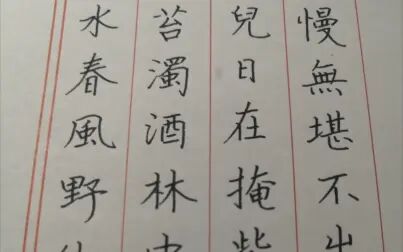 慢無堪不出
兒日在掩
苔濁酒林
水春風野